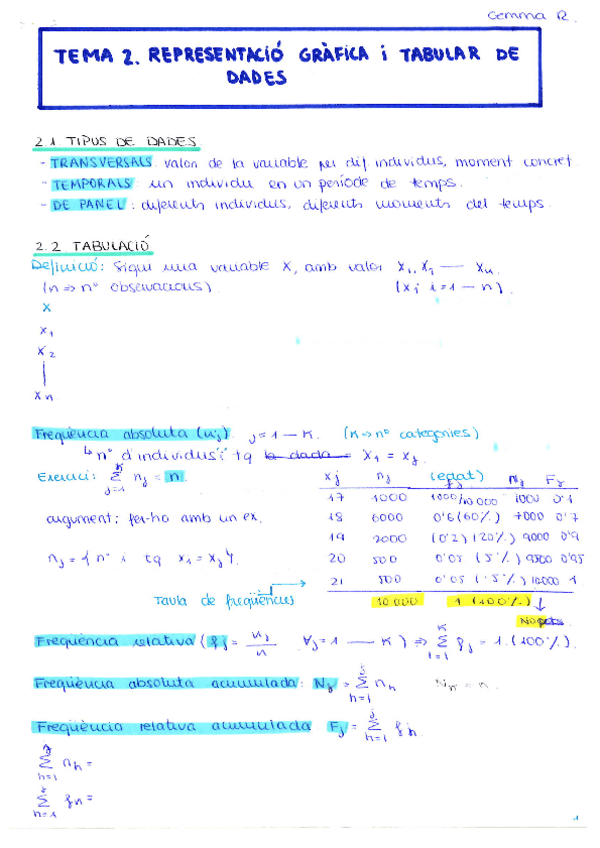 Gemma R.
TEMA 2. REPRESENTACIÓ GRÀFICA i TABULAR DE
DADES
2.1 TIPUS DE DADES
- TRANSVERSALS: valor de la variable per dif individus, moment concret
- TEMPORALS: un individu en un període de temps.
- DE PANEL: diferents individus, diferents moments del temps.
2.2 TABULACIÓ
Definició: Sigui una variable X, amb valor x₁, x₂ — xₙ.
(n => nº observacions) (xᵢ i=1 — n)
X
x₁
x₂
|
xₙ
Freqüència absoluta (nj) j=1 — K. (K => nº categories)
↳ nº d'individus "i" tq la dada = xi = xj.
Exercici: Σ (j=1, K) nj = n
xj nj (edat) fj Nj Fj
17 1000 1000/10000 1000 0'1
argument: fer-ho amb un ex.
18 6000 0'6 (60%) 7000 0'7
19 2000 (0'2) (20%) 9000 0'9
nj = { nº i tq xi = xj }.
20 500 0'05 (5%) 9500 0'95
21 500 0'05 (5%) 10000 1
Taula de freqüències
10 000 1 (100%) ↓
Freqüència relativa (fj = nj/n ∀j=1 — K) => Σ (i=1, K) fj = 1 (100%).
Freqüència absoluta acumulada: Nj = Σ (h=1, j) nh Nk = n.
Freqüència relativa acumulada Fj = Σ (h=1, j) fh.
Σ (h=1, j) nh =
Σ (h=1, j) fh =
1